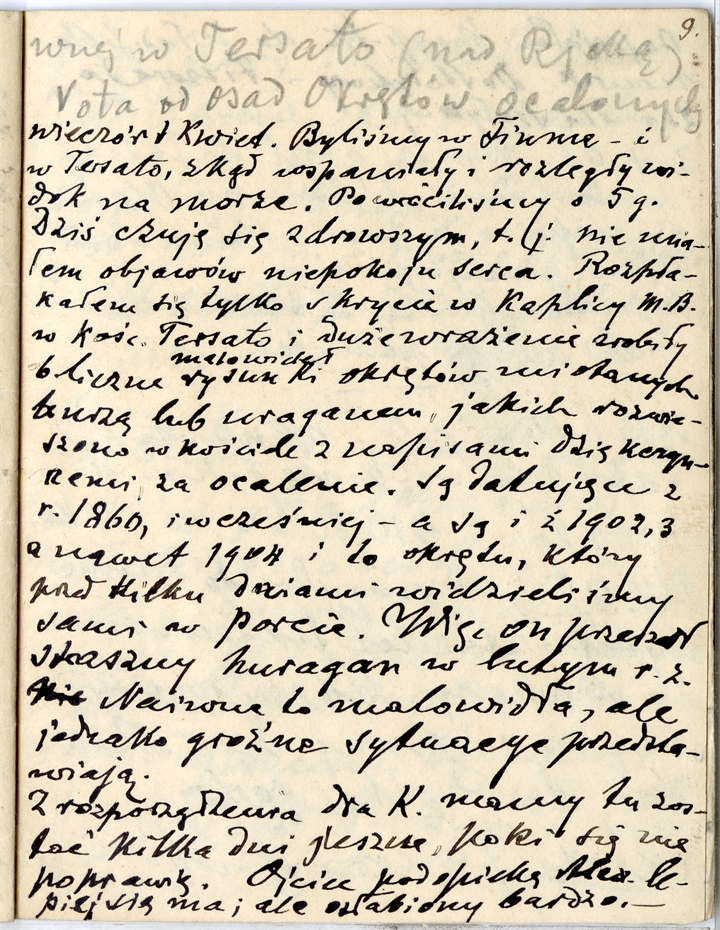 9.
wnej w Tersato (nad Rjeką)
Vota od osad Okrętów ocalonych
wieczór 1 Kwiet. Byliśmy w Fiume – i
w Tersato, skąd wspaniały i rozległy wi-
dok na morze. Powróciliśmy o 5 g.
Dziś czuję się zdrowszym, t. j. nie mia-
łem objawów niepokoju serca. Rozpła-
kałem się tylko skrycie w Kaplicy M.B.
w Kośc. Tersato i duże wrażenie zrobiły
malowideł
liczne rysunki okrętów miotanych
burzą lub uraganem, jakich rozwie-
szono w kościele z napisami dziękczyn-
nemi za ocalenie. Są datujące z
r. 1860, i wcześniej – a są i z 1902, 3
a nawet 1904 i to okrętu, który
przed kilku dniami widzieliśmy
sami w porcie. Więc on przeszedł
straszny huragan w lutym r. z.
Naiwne to malowidła, ale
jednako groźne sytuacye przedsta-
wiają.
Z rozporządzenia dra K. mamy tu zos-
tać kilka dni jeszcze, póki się nie
poprawię. Ojciec pod opieką Alex. le-
piej się ma; ale osłabiony bardzo. –